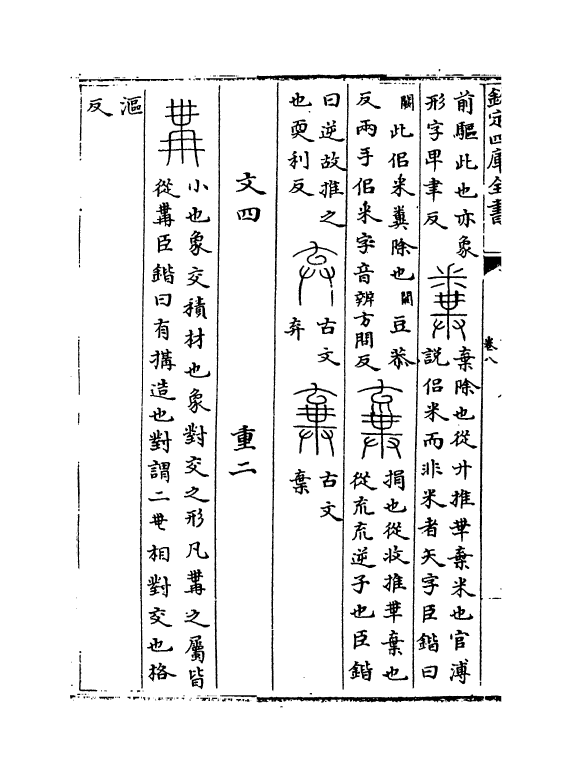 欽定四庫全書
卷八
前驅此也亦象
形字卑聿反
糞
棄除也從廾推𠦒棄米也官溥
説侣米而非米者矢字臣鍇曰
闗此侣米糞除也闗豆恭
反兩手侣米字音辨方問反
棄
捐也從收推𠦒棄也
從㐬㐬逆子也臣鍇
曰逆故推之
也耎利反
弃
古文
弃
棄
古文
棄
文四 重二
冓
小也象交積材也象對交之形凡冓之屬皆
從冓臣鍇曰有搆造也對謂二冄相對交也格
漚
反